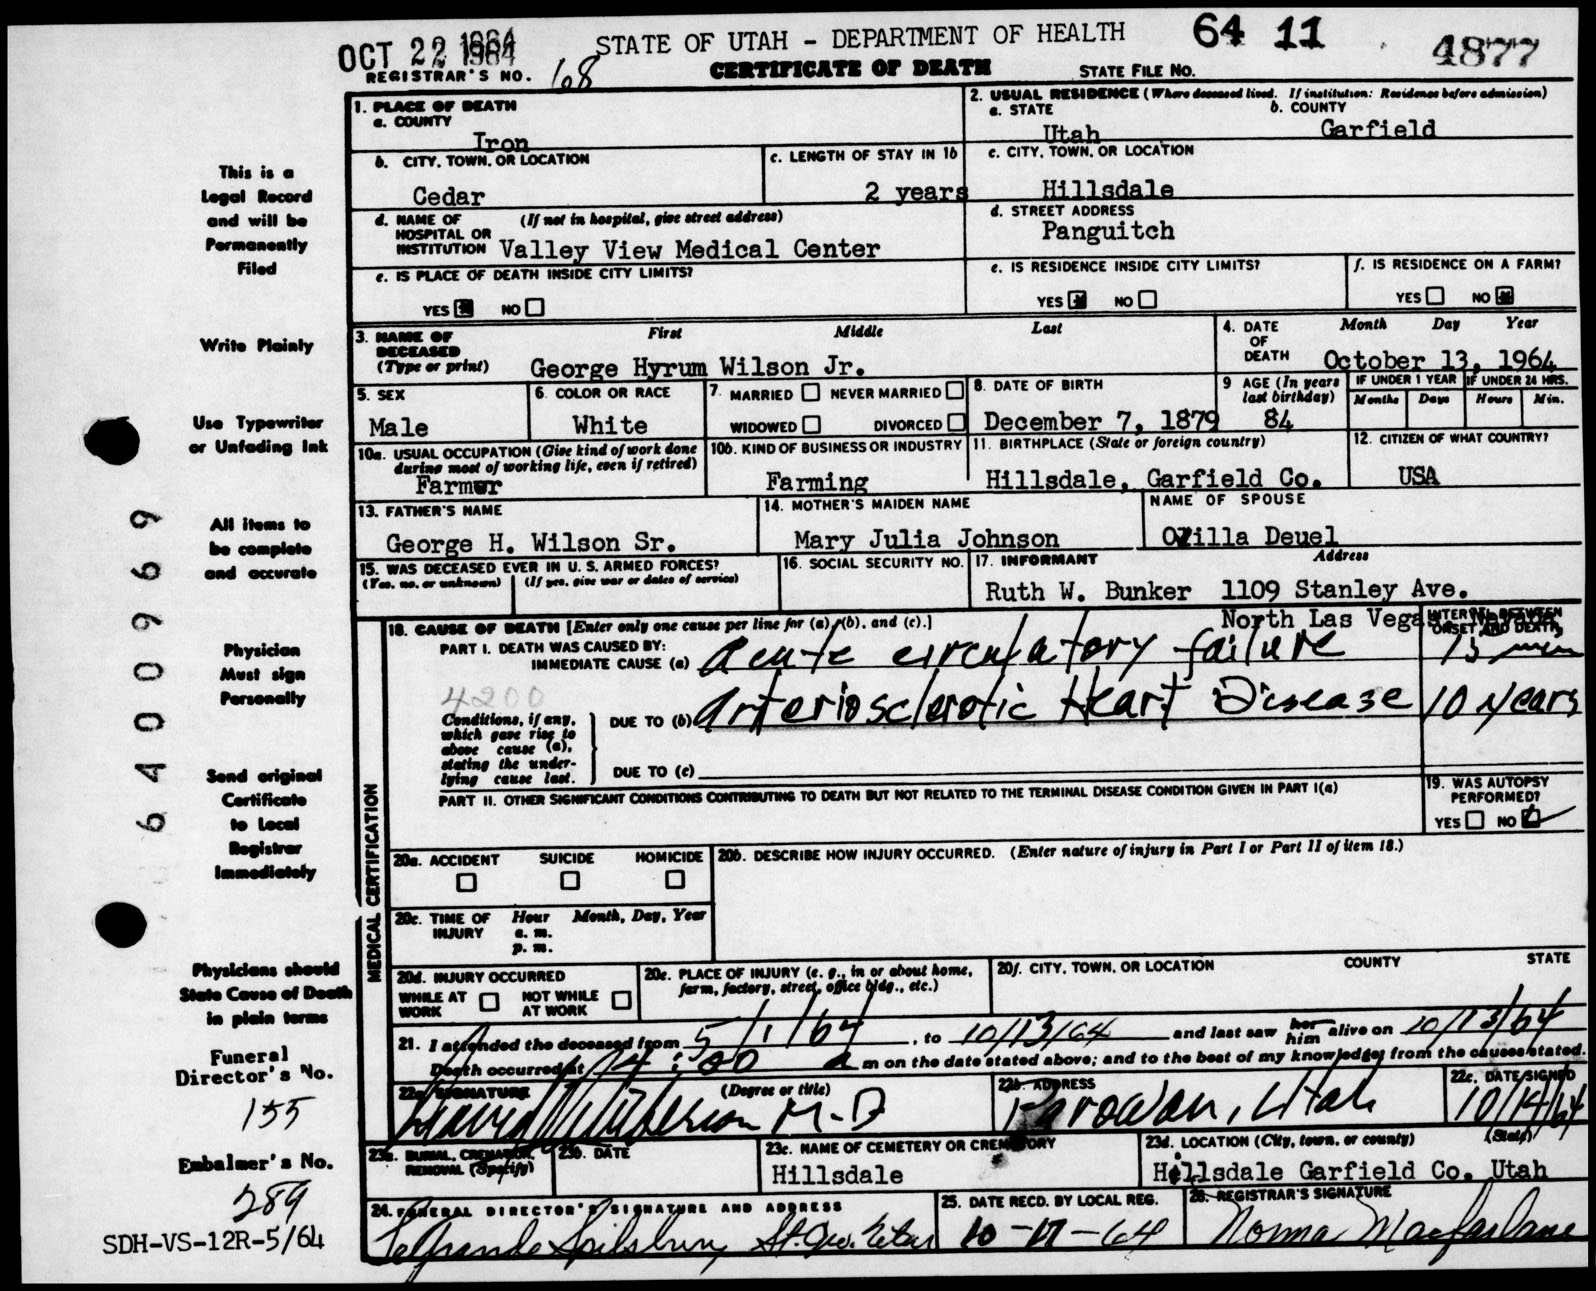 OCT 22 1964
STATE OF UTAH - DEPARTMENT OF HEALTH
64 11
4877
REGISTRAR'S NO. 168
CERTIFICATE OF DEATH
STATE FILE NO.
1. PLACE OF DEATH
a. COUNTY
Iron
2. USUAL RESIDENCE (Where deceased lived. If institution: Residence before admission)
a. STATE
Utah
b. COUNTY
Garfield
b. CITY, TOWN, OR LOCATION
Cedar
c. LENGTH OF STAY IN 1b
2 years
c. CITY, TOWN, OR LOCATION
Hillsdale
d. NAME OF HOSPITAL OR INSTITUTION
(If not in hospital, give street address)
Valley View Medical Center
d. STREET ADDRESS
Panguitch
e. IS PLACE OF DEATH INSIDE CITY LIMITS?
YES NO
e. IS RESIDENCE INSIDE CITY LIMITS?
YES NO
f. IS RESIDENCE ON A FARM?
YES NO
3. NAME OF DECEASED
(Type or print)
First Middle Last
George Hyrum Wilson Jr.
4. DATE OF DEATH
Month Day Year
October 13, 1964
5. SEX
Male
6. COLOR OR RACE
White
7. MARRIED NEVER MARRIED
WIDOWED DIVORCED
8. DATE OF BIRTH
December 7, 1879
9 AGE (In years last birthday)
84
IF UNDER 1 YEAR
Months Days
IF UNDER 24 HRS.
Hours Min.
10a. USUAL OCCUPATION (Give kind of work done during most of working life, even if retired)
Farmer
10b. KIND OF BUSINESS OR INDUSTRY
Farming
11. BIRTHPLACE (State or foreign country)
Hillsdale, Garfield Co.
12. CITIZEN OF WHAT COUNTRY?
USA
13. FATHER'S NAME
George H. Wilson Sr.
14. MOTHER'S MAIDEN NAME
Mary Julia Johnson
NAME OF SPOUSE
Ozilla Deuel
15. WAS DECEASED EVER IN U. S. ARMED FORCES?
(Yes, no, or unknown) (If yes, give war or dates of service)
16. SOCIAL SECURITY NO.
17. INFORMANT
Address
Ruth W. Bunker 1109 Stanley Ave.
North Las Vegas, Nevada
18. CAUSE OF DEATH [Enter only one cause per line for (a), (b), and (c).]
INTERVAL BETWEEN ONSET AND DEATH
PART I. DEATH WAS CAUSED BY:
IMMEDIATE CAUSE (a) Acute circulatory failure
15 min
4200
Conditions, if any, which gave rise to above cause (a), stating the underlying cause last.
DUE TO (b) Arteriosclerotic Heart Disease
10 years
DUE TO (c)
PART II. OTHER SIGNIFICANT CONDITIONS CONTRIBUTING TO DEATH BUT NOT RELATED TO THE TERMINAL DISEASE CONDITION GIVEN IN PART I(a)
19. WAS AUTOPSY PERFORMED?
YES NO
MEDICAL CERTIFICATION
20a. ACCIDENT SUICIDE HOMICIDE
20b. DESCRIBE HOW INJURY OCCURRED. (Enter nature of injury in Part I or Part II of item 18.)
20c. TIME OF INJURY
Hour Month, Day, Year
a. m.
p. m.
20d. INJURY OCCURRED
WHILE AT WORK NOT WHILE AT WORK
20e. PLACE OF INJURY (e. g., in or about home, farm, factory, street, office bldg., etc.)
20f. CITY, TOWN, OR LOCATION COUNTY STATE
21. I attended the deceased from 5/1/64, to 10/13/64 and last saw her him alive on 10/13/64
Death occurred at 4:00 a m on the date stated above; and to the best of my knowledge, from the causes stated.
22a. SIGNATURE
(Degree or title)
M-D
22b. ADDRESS
Parowan, Utah
22c. DATE SIGNED
10/14/64
23a. BURIAL, CREMATION, REMOVAL (Specify)
23b. DATE
23c. NAME OF CEMETERY OR CREMATORY
Hillsdale
23d. LOCATION (City, town, or county) (State)
Hillsdale Garfield Co. Utah
24. FUNERAL DIRECTOR'S SIGNATURE AND ADDRESS
LeGrande Spilsbury St. Geo. Utah
25. DATE RECD. BY LOCAL REG.
10-17-64
26. REGISTRAR'S SIGNATURE
Norma Macfarlane
This is a
Legal Record
and will be
Permanently
Filed
Write Plainly
Use Typewriter
or Unfading Ink
All items to
be complete
and accurate
Physician
Must sign
Personally
Send original
Certificate
to Local
Registrar
Immediately
Physicians should
State Cause of Death
in plain terms
Funeral
Director's No.
155
Embalmer's No.
289
SDH-VS-12R-5/64
6400969